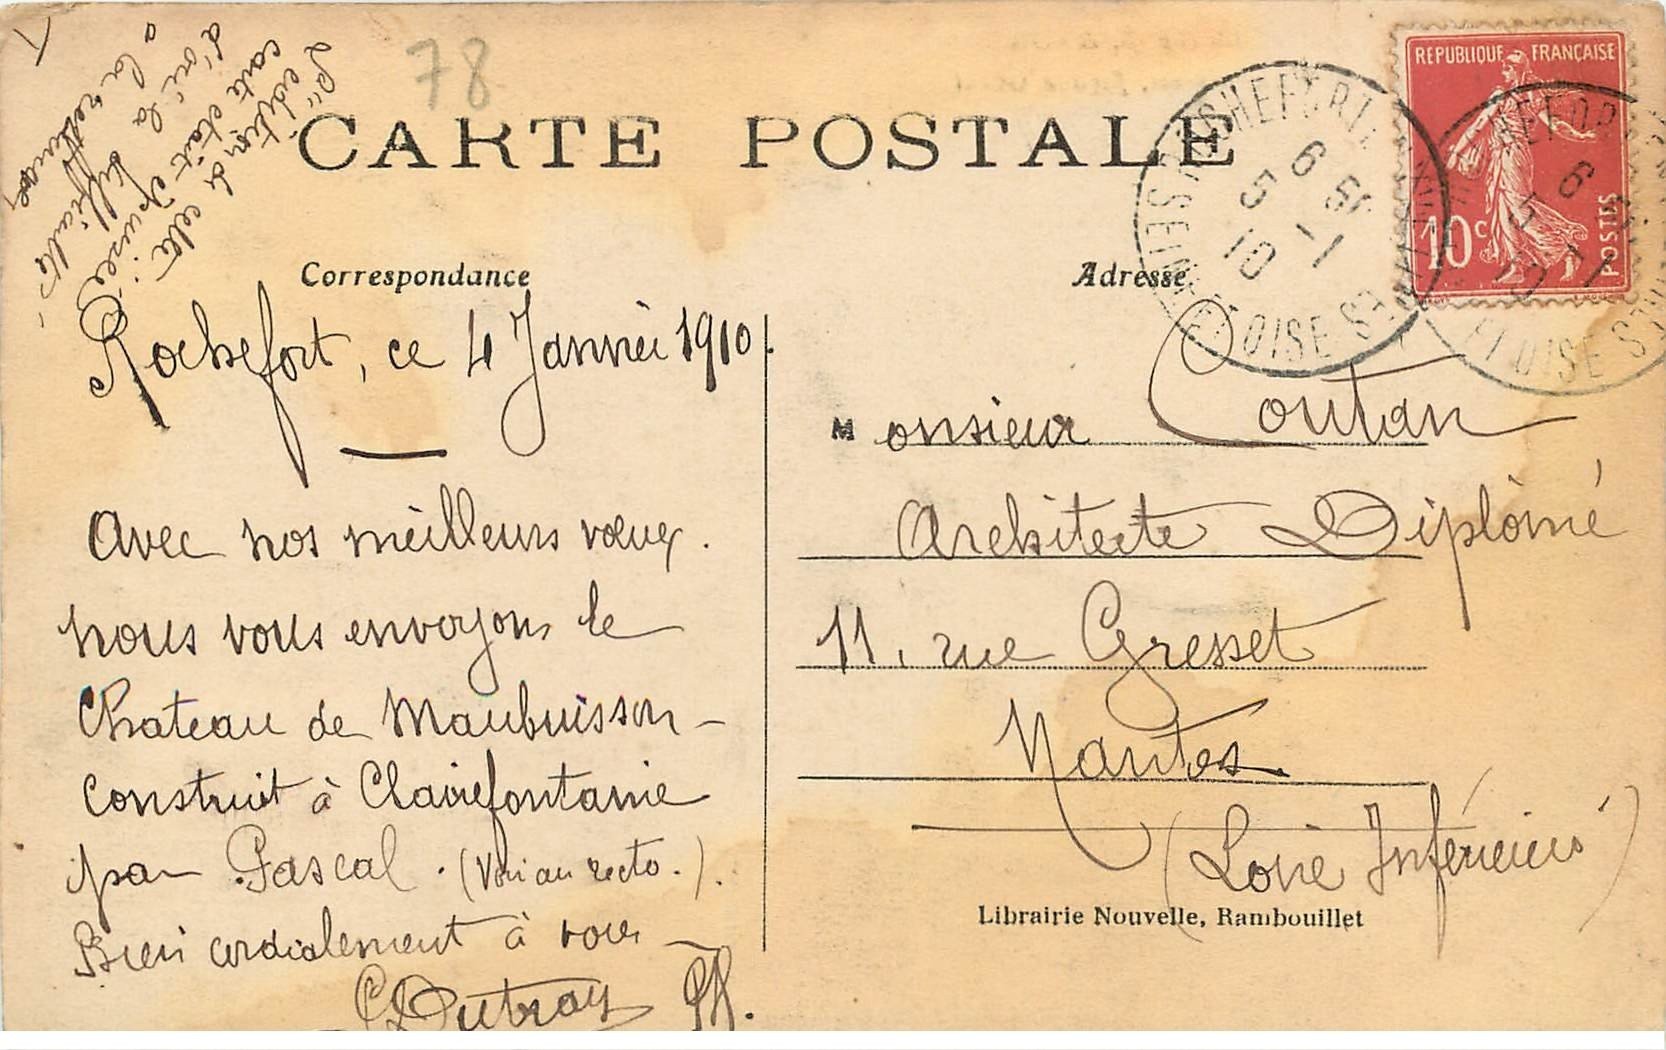 78
L'édition de cette
carte etait épuisée
d'où la difficulté
a la retrouver
CARTE POSTALE
Correspondance
Adresse
REPUBLIQUE FRANÇAISE
10c
POSTES
ROCHEFORT-EN-YVELINES
SEINE-ET-OISE
6
5 -1
10
Rochefort, ce 4 Janvier 1910.
Avec nos meilleurs vœux.
nous vous envoyons le
Chateau de Maubuisson -
construit à Clairefontaine
par Pascal. (Voir au recto.).
Bien cordialement à vous
Dutray
Monsieur Coutan
Architecte Diplômé
11, rue Gresset
Nantes
(Loire Inférieure)
Librairie Nouvelle, Rambouillet